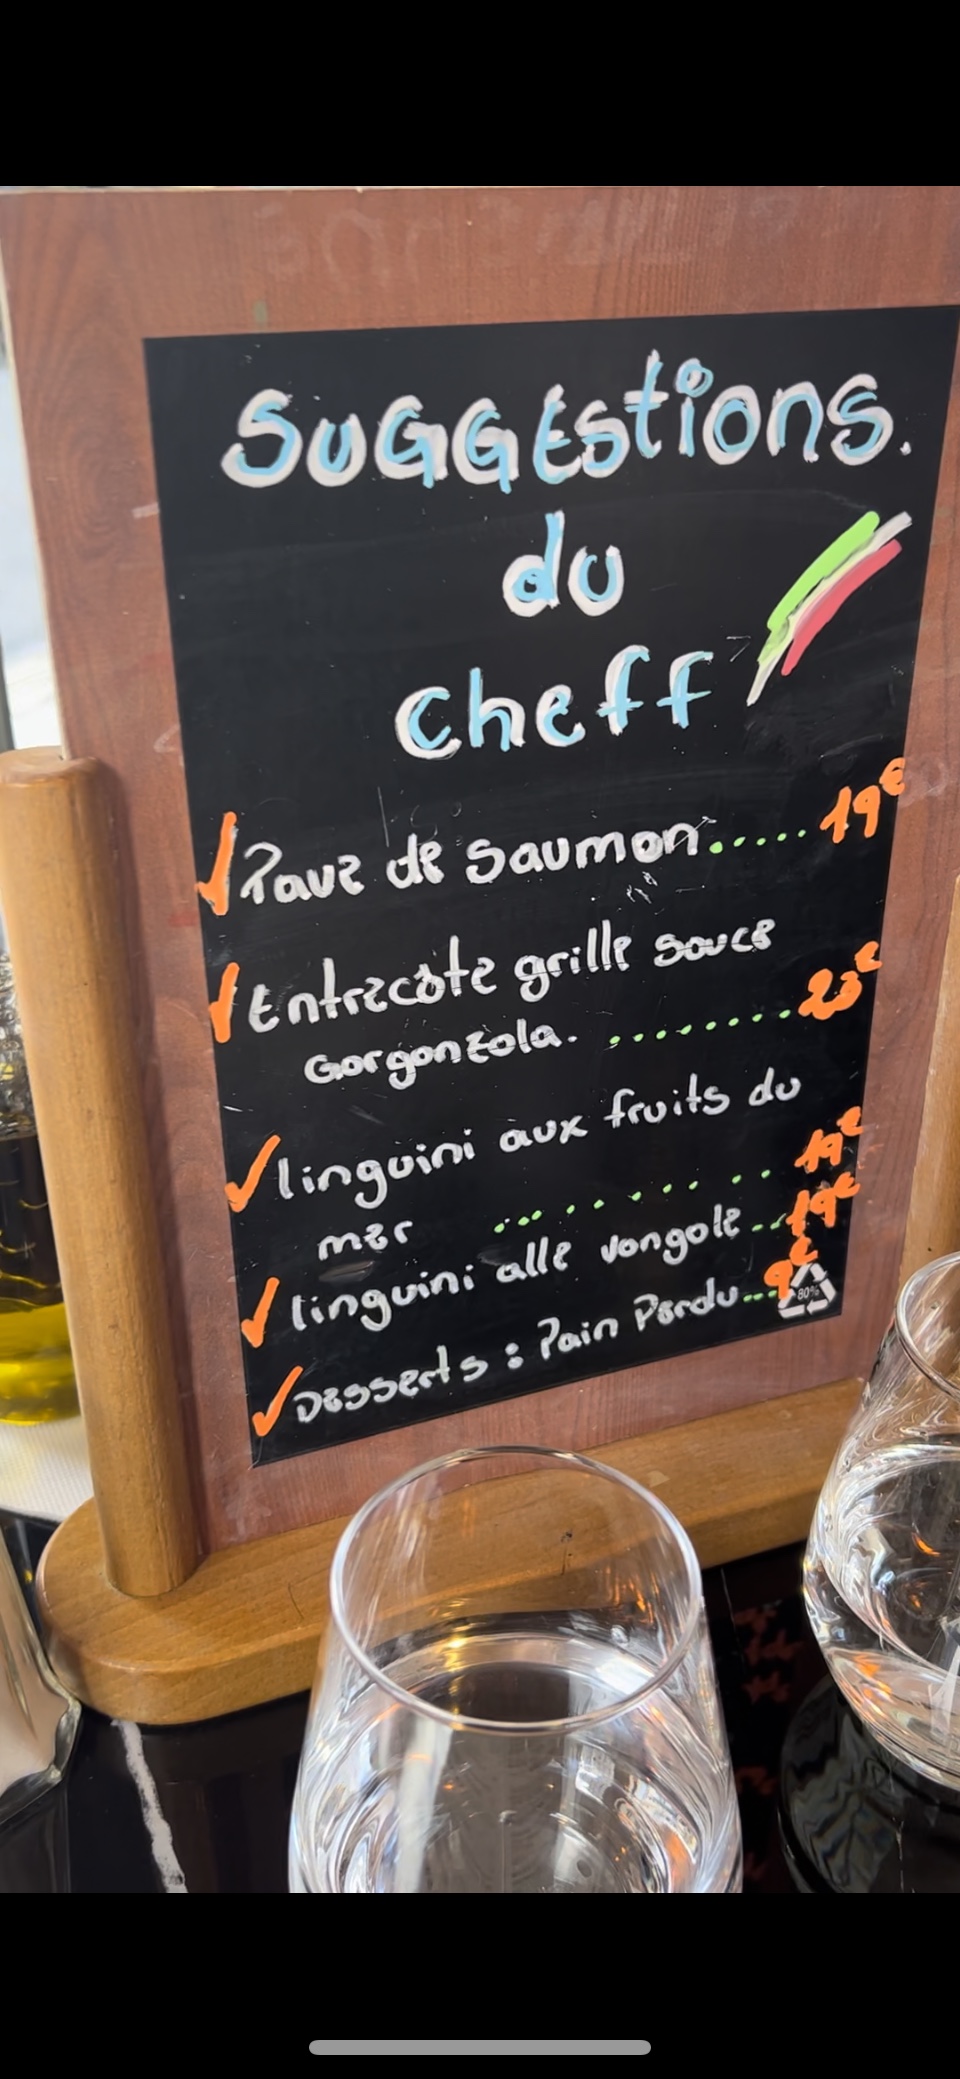 Suggestions.
du
cheff
Pave de saumon.....19€
Entrecôte grille sauce
Gorgonzola. ........23€
linguini aux fruits du
mer ........19€
linguini alle vongole...19€
Desserts : Pain Perdu...9€
80%